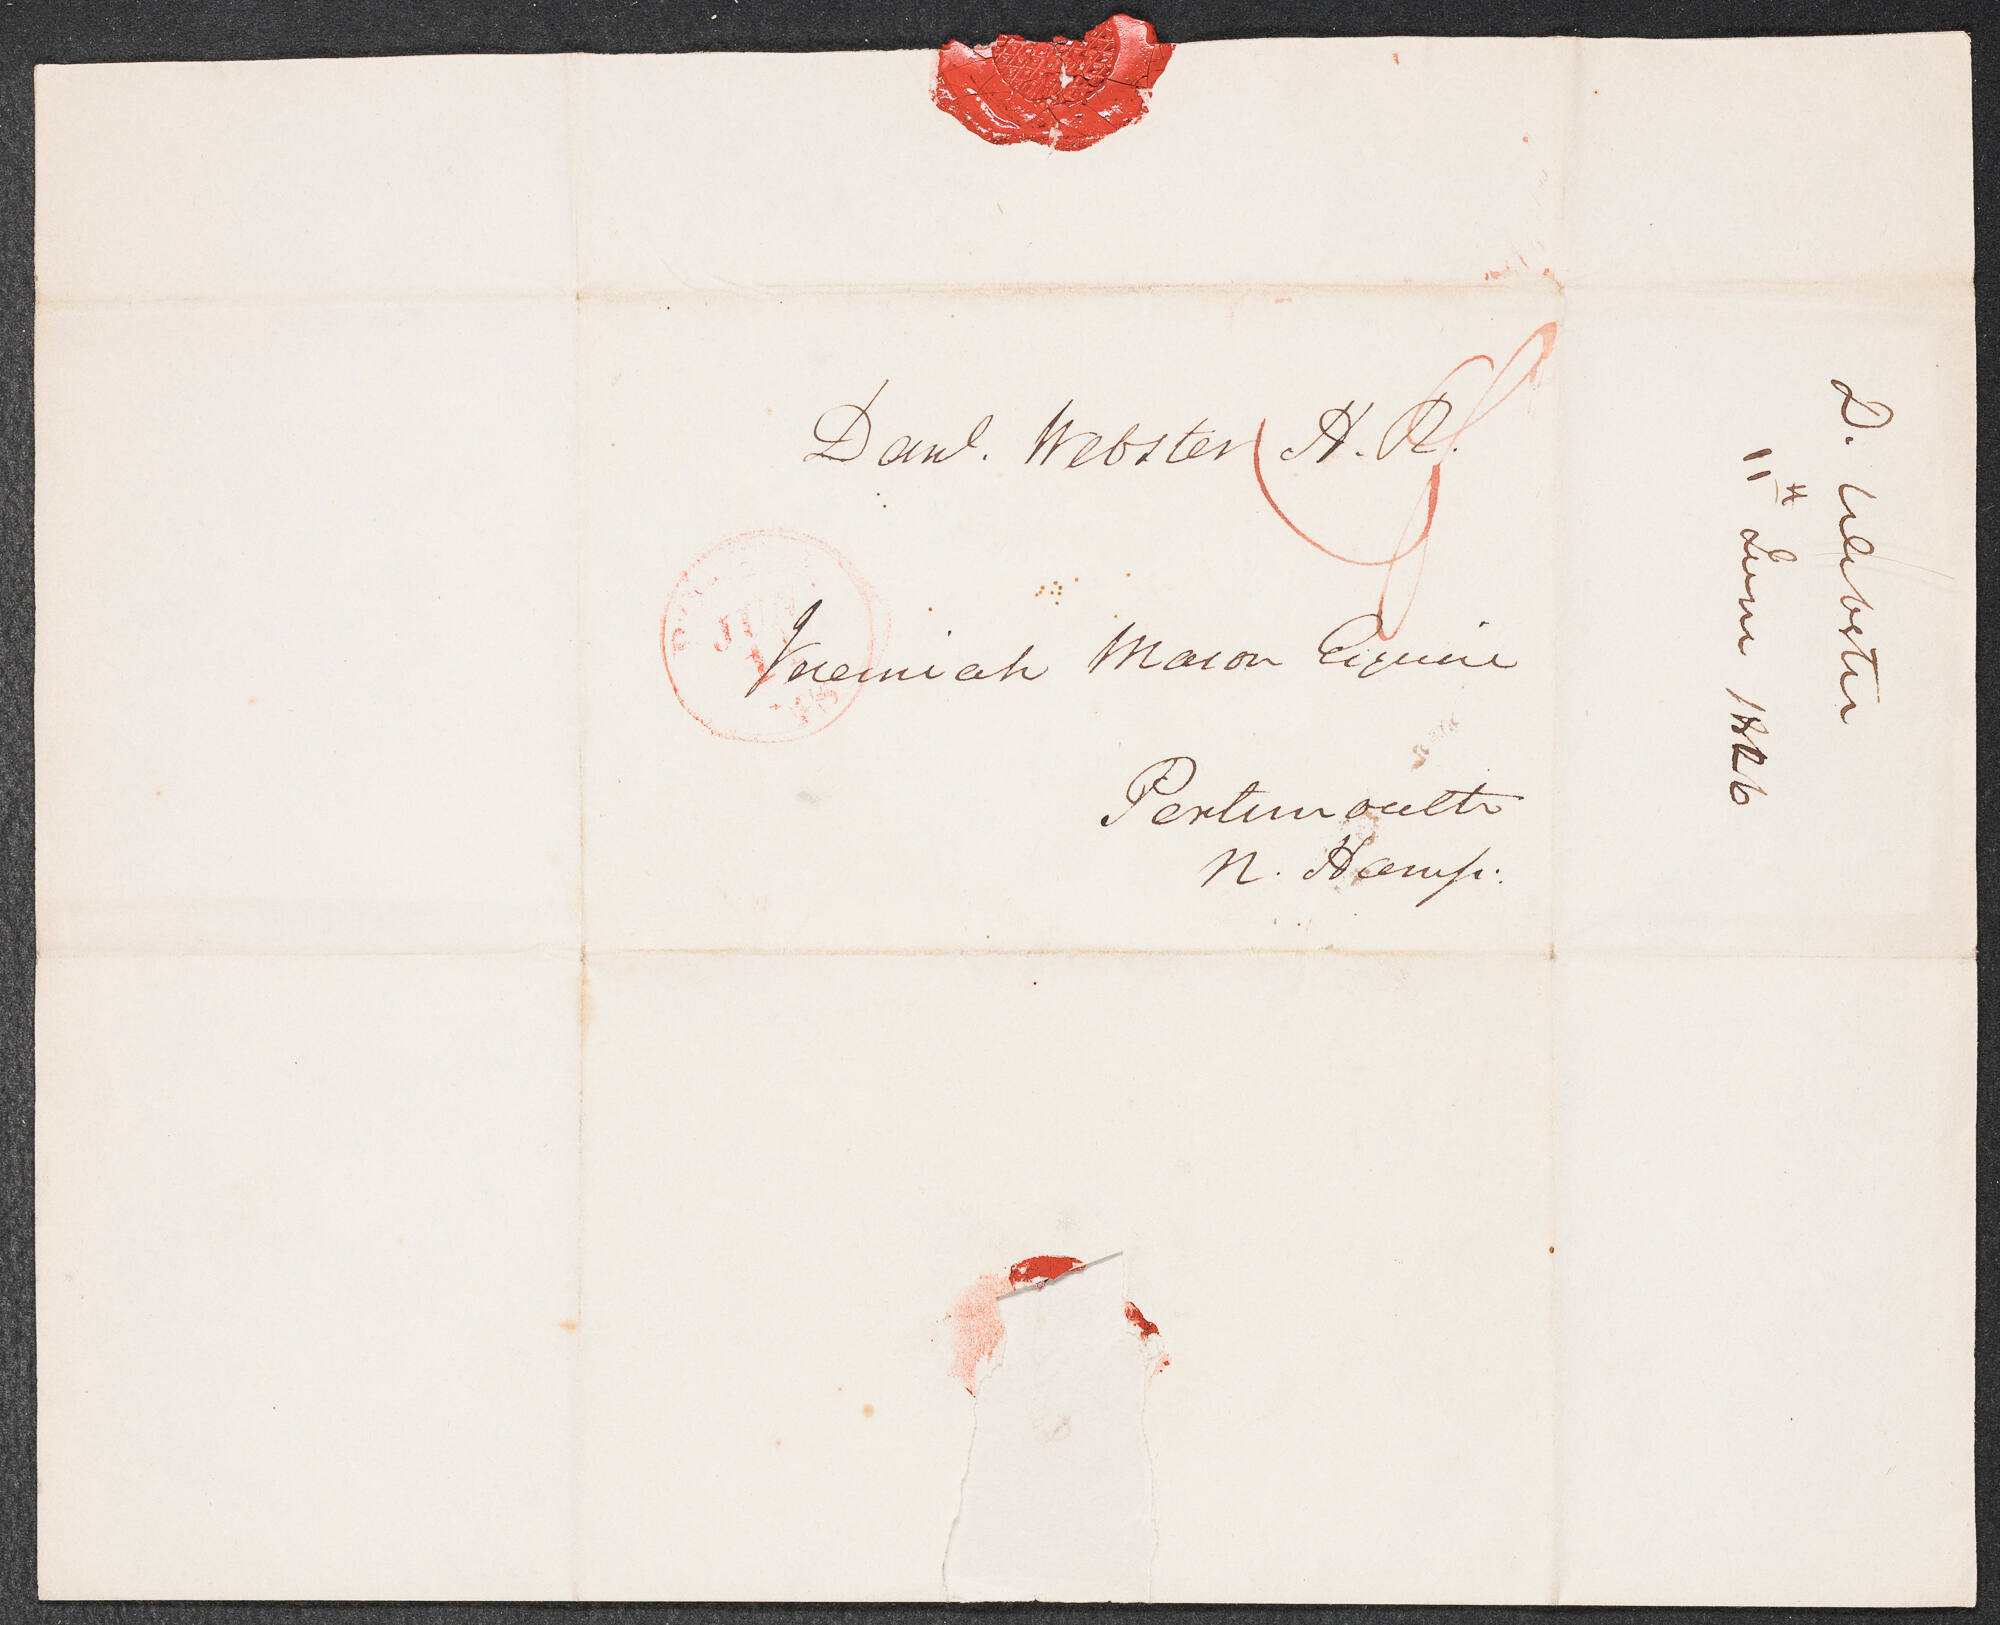 Danl. Webster H. R.
JUN
MS
Jeremiah Mason Esquire
Portsmouth
N. Hamp:
D. Webster
11th June 1826